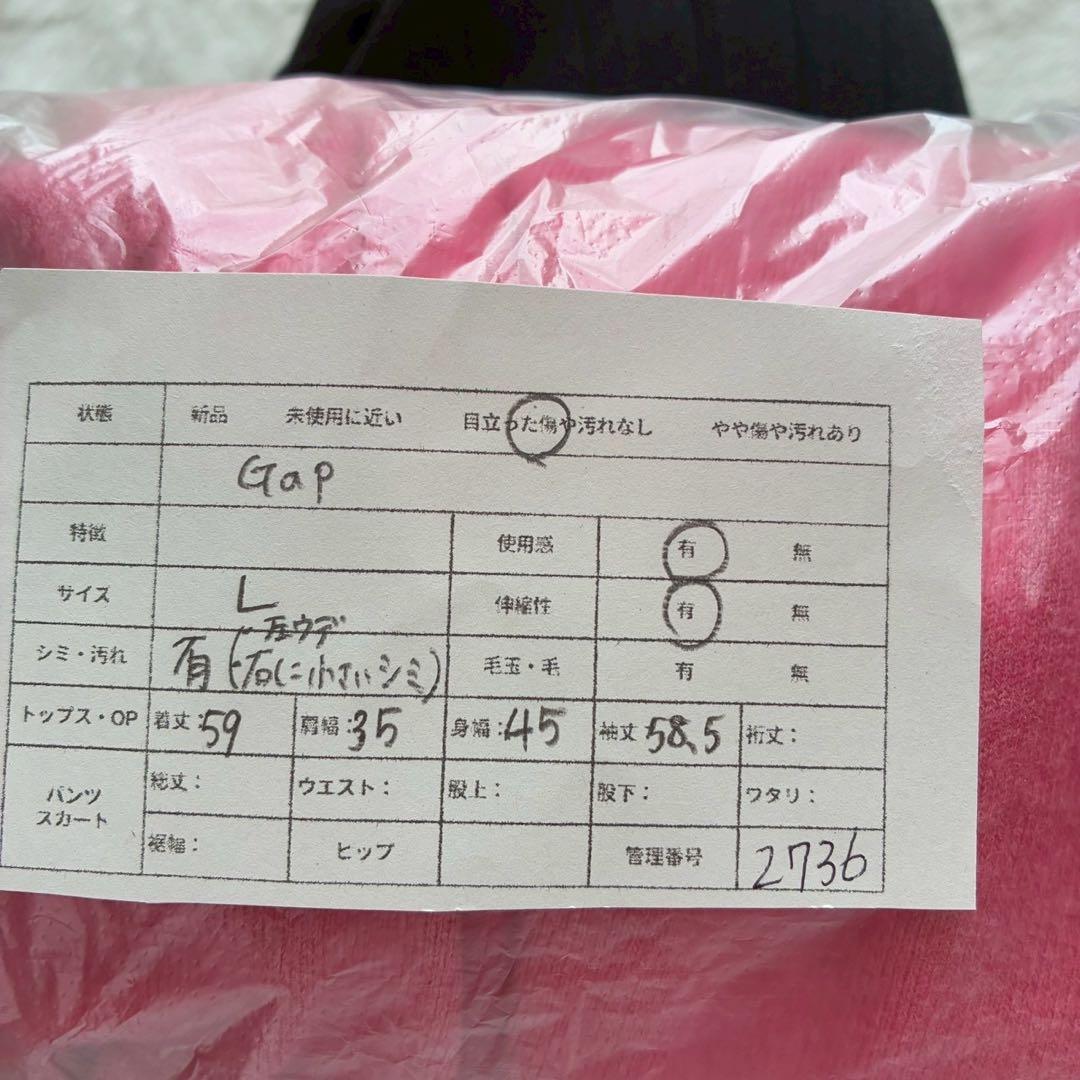 状態 新品 未使用に近い 目立った傷や汚れなし やや傷や汚れあり
Gap
特徴 使用感 有 無
サイズ L 伸縮性 有 無
左ウデ
シミ・汚れ 有 (右に小さいシミ) 毛玉・毛 有 無
トップス・OP 着丈:59 肩幅:35 身幅:45 袖丈58.5 裄丈:
パンツ スカート 総丈: ウエスト: 股上: 股下: ワタリ:
裾幅: ヒップ 管理番号 2736